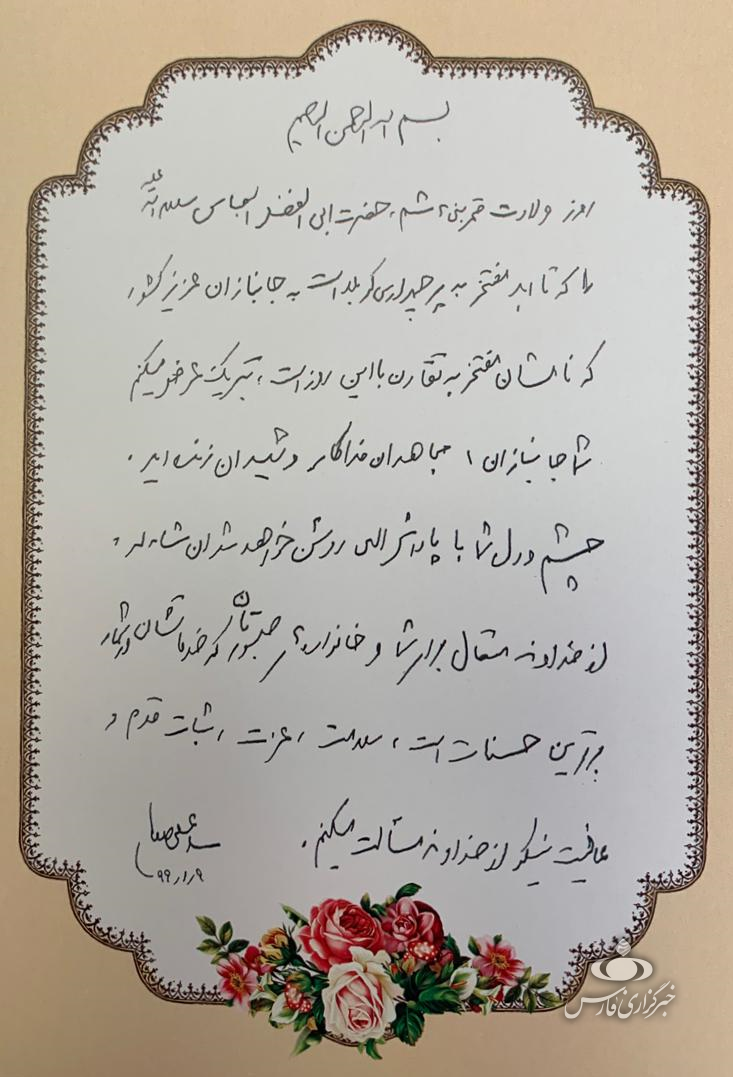 بسم الله الرحمن الرحیم
امروز ولادت قمر بنی هاشم، حضرت ابی الفضل العباس سلام الله علیه
را که تا ابد مفتخر به پرچمداری کربلاست به جانبازان عزیز کشور
که نامشان مفتخر به تقارن با این روز است، تبریک عرض میکنم
شما جانبازان، مجاهدان فداکار و شهیدان زنده اید.
چشم و دل شما با پاداش الهی روشن خواهد شد ان شاءالله.
از خداوند متعال برای شما و خانواده های صبورتان که خدماتشان در شمار
برترین حسنات است، سلامت، عزت، ثبات قدم و
عافیت نیکو از خداوند مسألت میکنم.
۹۹/۱/۹
خبرگزاری فارس